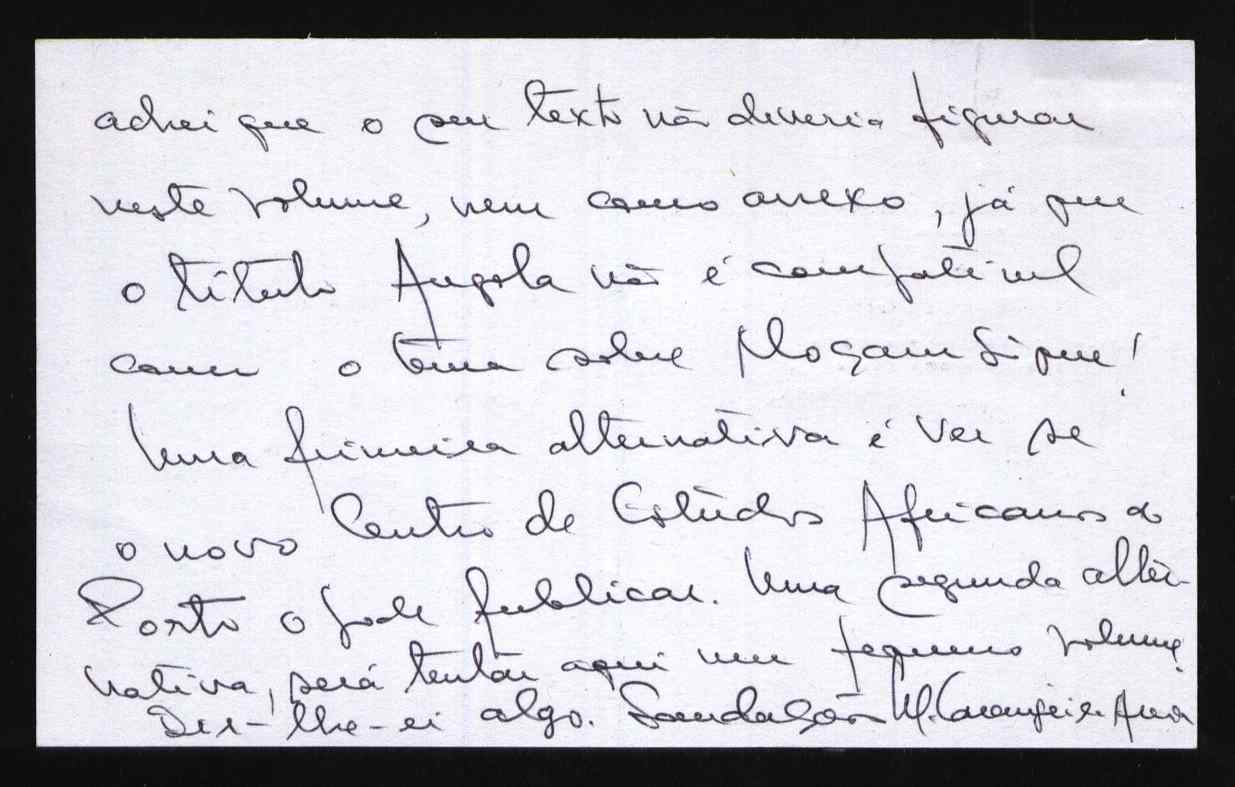 achei que o seu texto não deveria figurar
neste volume, nem como anexo, já que
o título Angola não é compatível
com o tema sobre Moçambique!
Uma primeira alternativa é ver se
o novo Centro de Estudos Africanos do
Porto o pode publicar. Uma segunda alter-
nativa, será tentar aqui um pequeno volume.
Dir-lhe-ei algo. Saudações M. Laranjeira